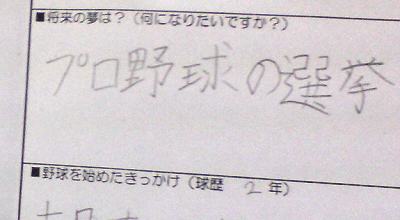 ■将来の夢は?(何になりたいですか?)
プロ野球の選挙
■野球を始めたきっかけ(球歴 2年)